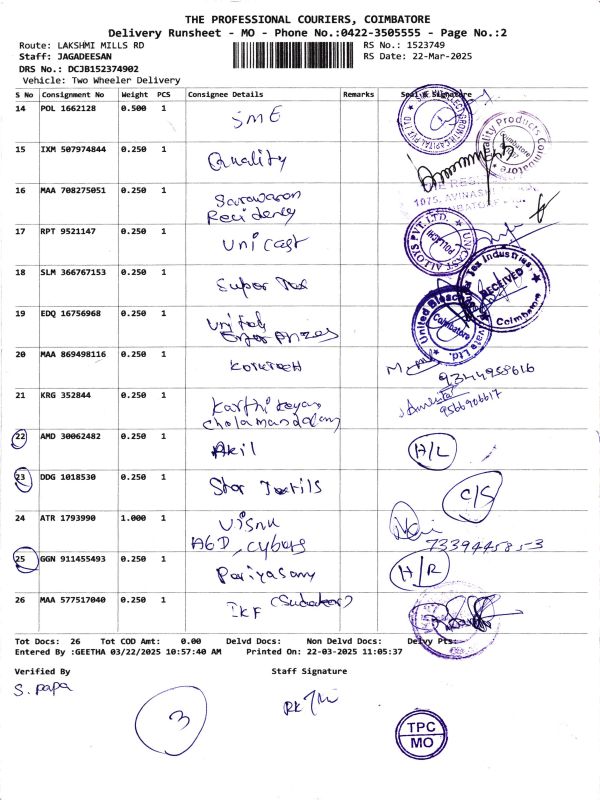 THE PROFESSIONAL COURIERS, COIMBATORE
Delivery Runsheet - MO - Phone No.:0422-3505555 - Page No.:2
Route: LAKSHMI MILLS RD
RS No.: 1523749
Staff: JAGADEESAN
RS Date: 22-Mar-2025
DRS No.: DCJB152374902
Vehicle: Two Wheeler Delivery
S No Consignment No Weight PCS Consignee Details Remarks Seal & Signature
14 POL 1662128 0.500 1 SME
15 IXM 507974844 0.250 1 Quality
Quality Products Coimbatore
16 MAA 708275051 0.250 1 Sarawanan
Recidency
1075, AVINASHI
17 RPT 9521147 0.250 1 Unicast
UNICAST ALLOYS PVT. LTD. POLLACHI
18 SLM 366767153 0.250 1 Super Tex
Tex Industries, RECEIVED Coimbatore
19 EDQ 16756968 0.250 1
United Bleachers Private Ltd. Coimbatore
20 MAA 869498116 0.250 1
9344958616
21 KRG 352844 0.250 1 Karthikeyan
cholamandalam
9566906617
22 AMD 30062482 0.250 1 Akil H/L
23 DDG 1018530 0.250 1 Star Textils C/S
24 ATR 1793990 1.000 1 Visnu
A6D, cybers
7339445853
25 GGN 911455493 0.250 1 Pariyasamy H/R
26 MAA 577517040 0.250 1 IKF
Tot Docs: 26 Tot COD Amt: 0.00 Delvd Docs: Non Delvd Docs: Delvy Pts:
Entered By :GEETHA 03/22/2025 10:57:40 AM Printed On: 22-03-2025 11:05:37
Verified By Staff Signature
S. papa
3
TPC
MO